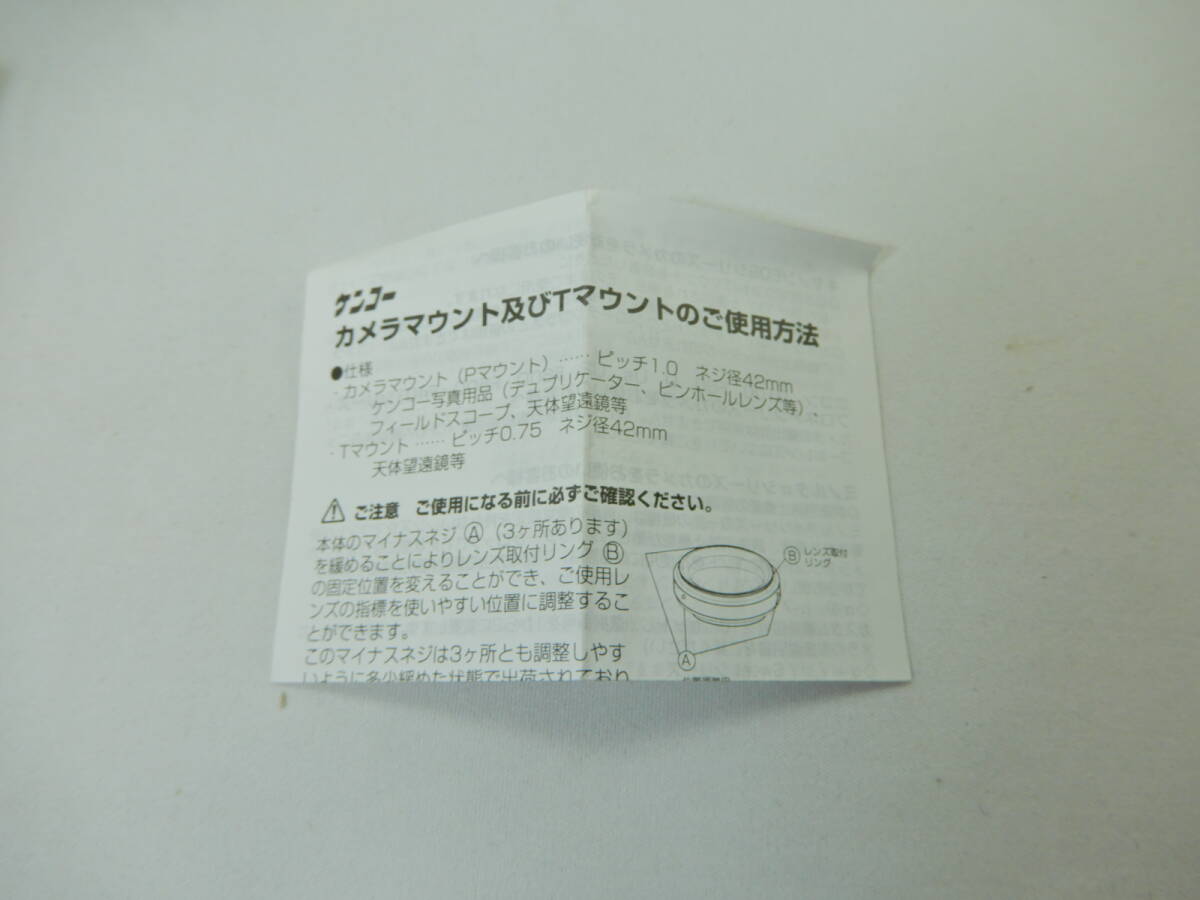 ケンコー
カメラマウント及びTマウントのご使用方法
●仕様
・カメラマウント（Pマウント）…… ピッチ1.0　ネジ径42mm
ケンコー写真用品（デュプリケーター、ピンホールレンズ等）、
フィールドスコープ、天体望遠鏡等
・Tマウント …… ピッチ0.75　ネジ径42mm
天体望遠鏡等
⚠ ご注意　ご使用になる前に必ずご確認ください。
本体のマイナスネジ Ⓐ（3ヶ所あります）
を緩めることによりレンズ取付リング Ⓑ
の固定位置を変えることができ、ご使用レ
ンズの指標を使いやすい位置に調整するこ
とができます。
このマイナスネジは3ヶ所とも調整しやす
いように多少緩めた状態で出荷されており
Ⓑ レンズ取付
リング
Ⓐ